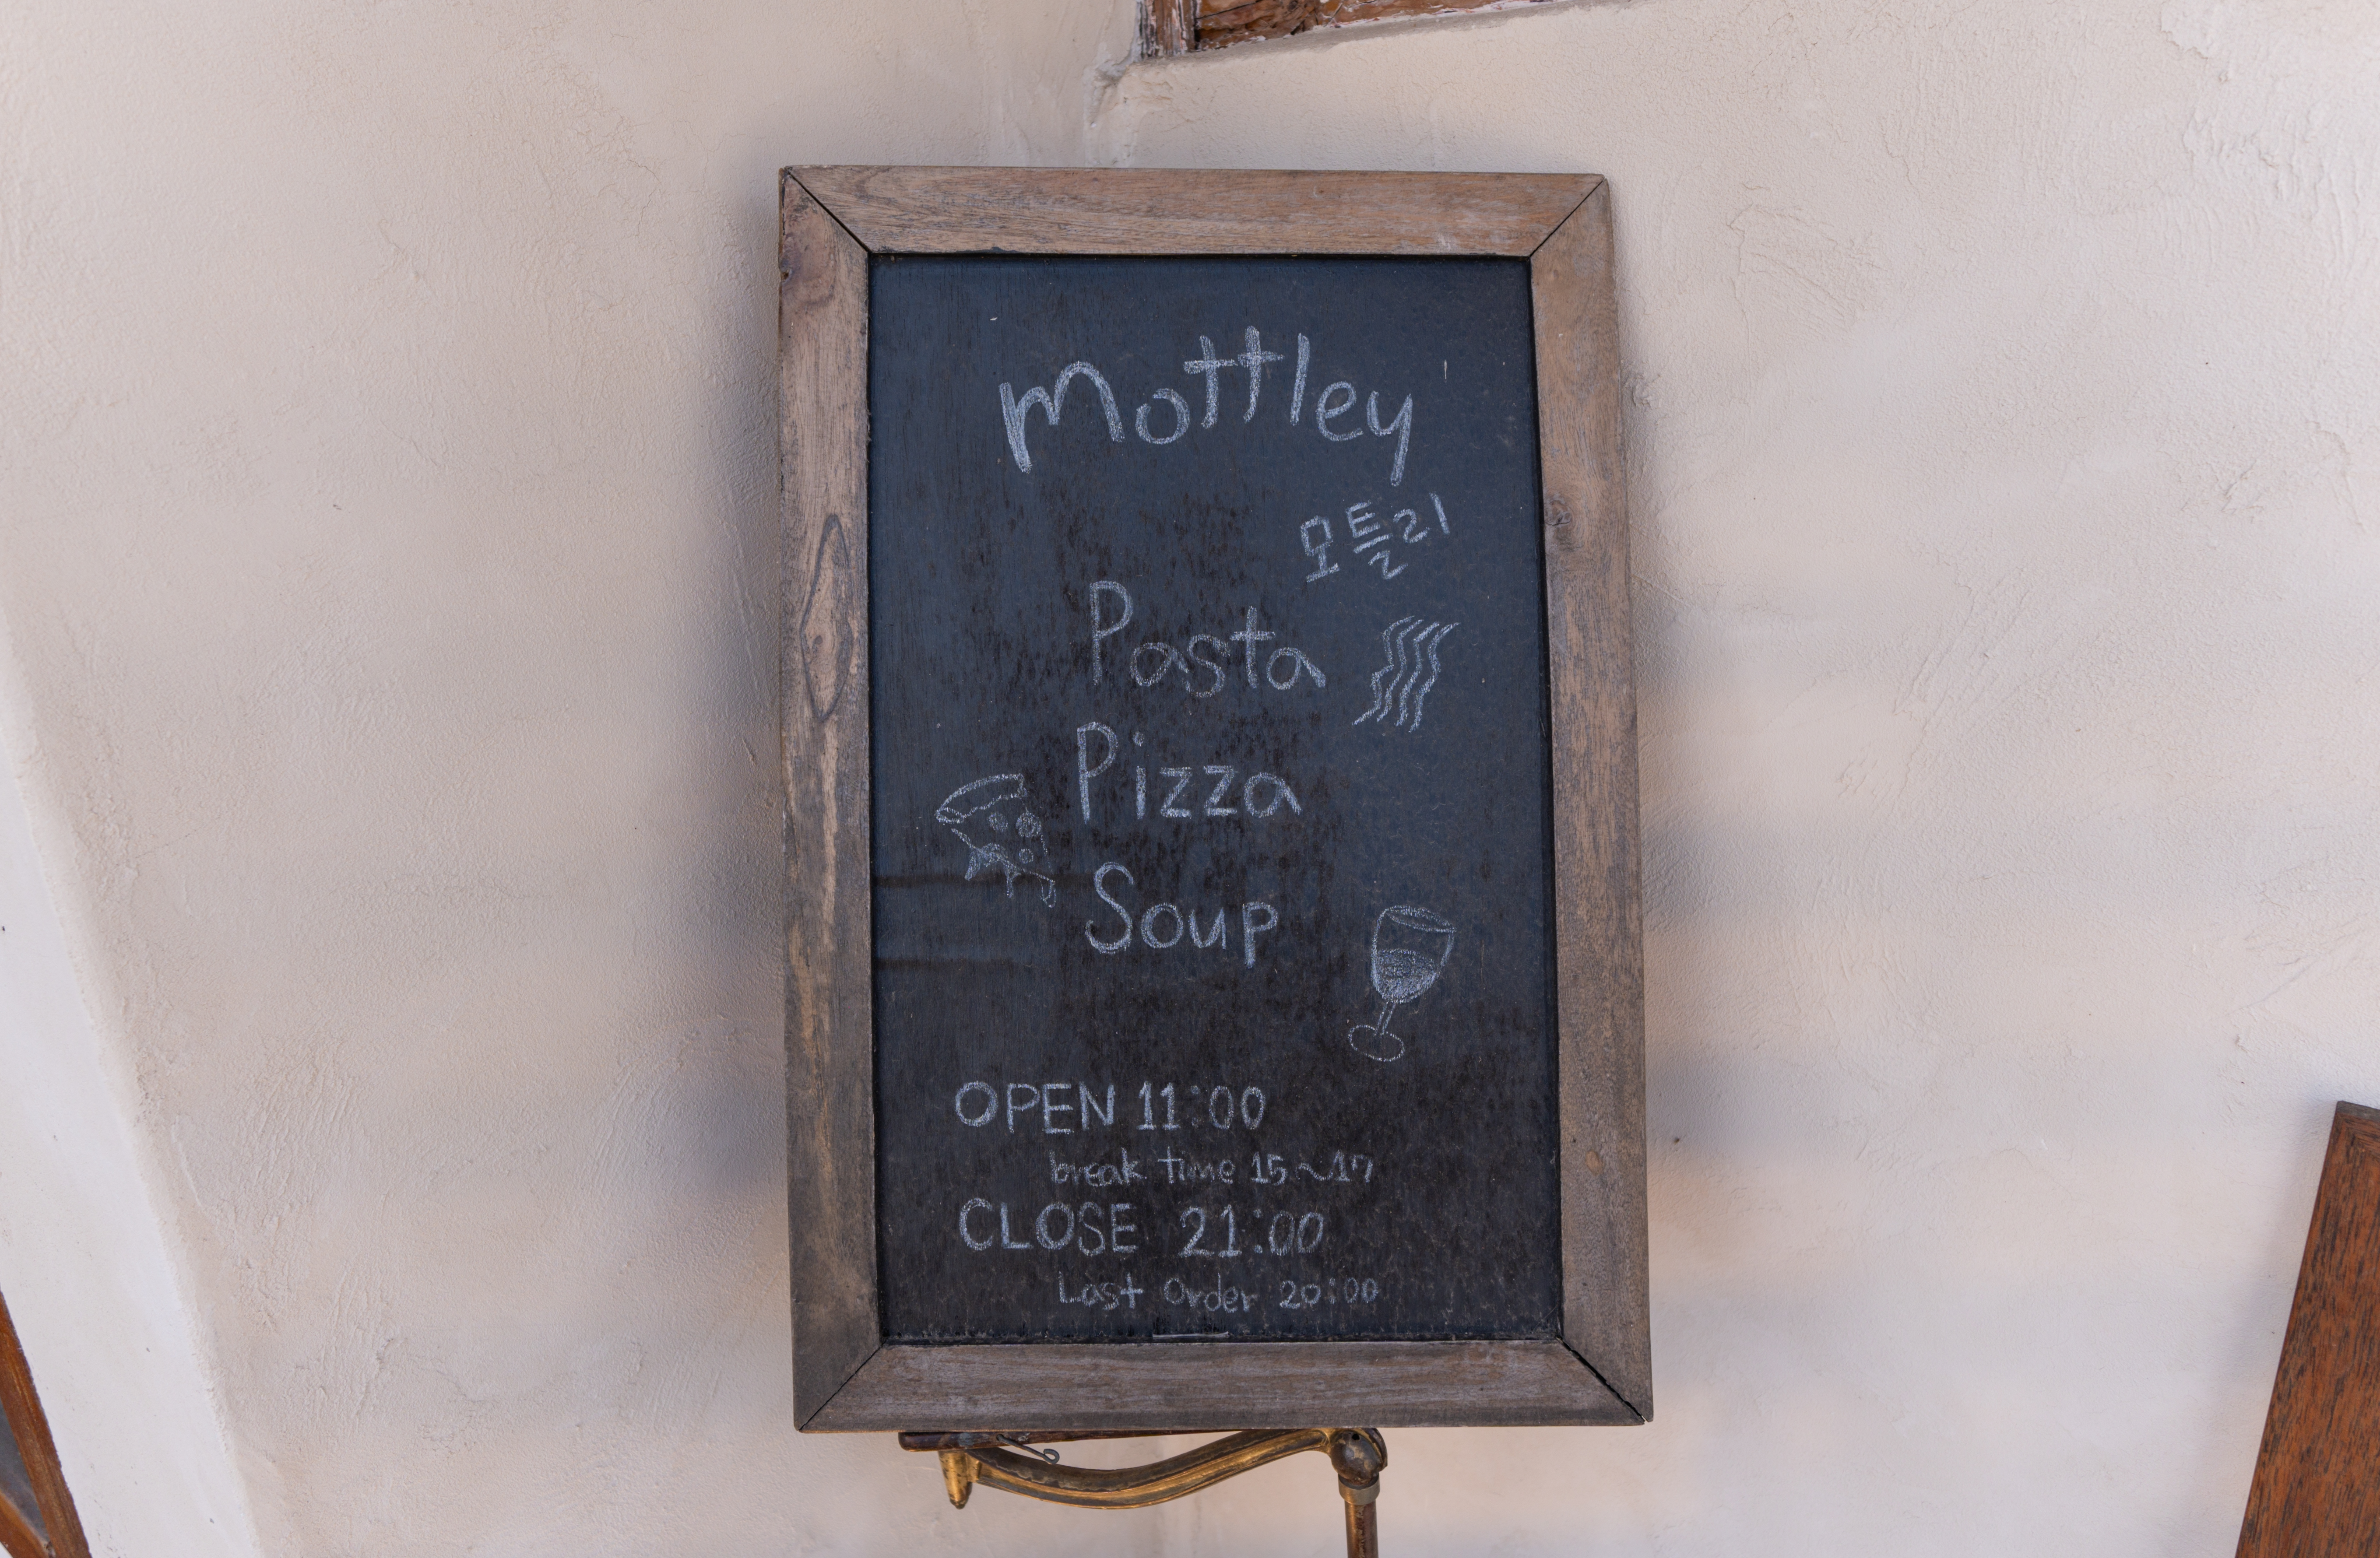 Mottley
모틀리
Pasta
Pizza
Soup
OPEN 11:00
break time 15~17
CLOSE 21:00
Last Order 20:00